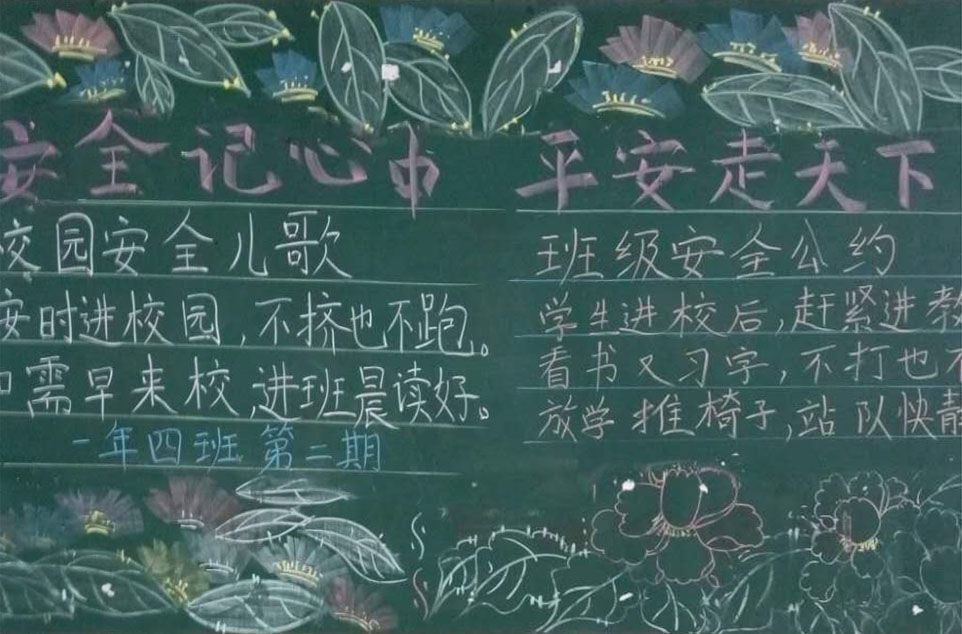 安全记心中 平安走天下
校园安全儿歌
按时进校园，不挤也不跑。
如需早来校，进班晨读好。
一年四班 第二期
班级安全公约
学生进校后，赶紧进教
看书又习字，不打也不
放学推椅子，站队快静